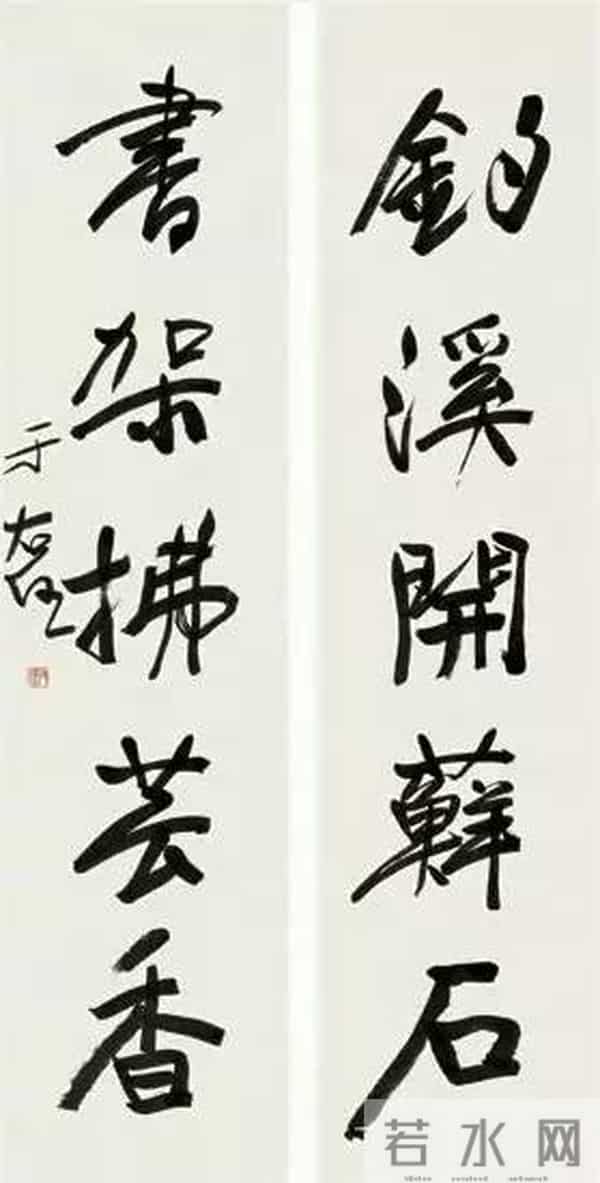 釣溪開蘚石
書架拂芸香
于右任
若水网